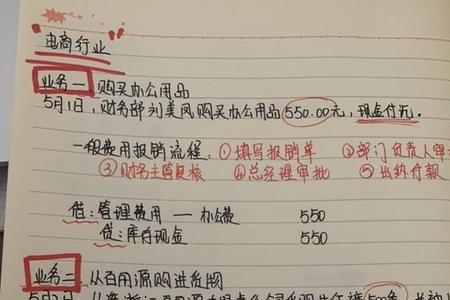 电商行业
业务一 购买办公用品
5月1日，财务部刘美凤购买办公用品550.00元，现金付讫。
一般费用报销流程：①填写报销单 ②部门负责人审
③财务主管复核 ④总经理审批 ⑤出纳付款
借：管理费用—办公费 550
贷：库存现金 550
业务二 从百用源购进货物